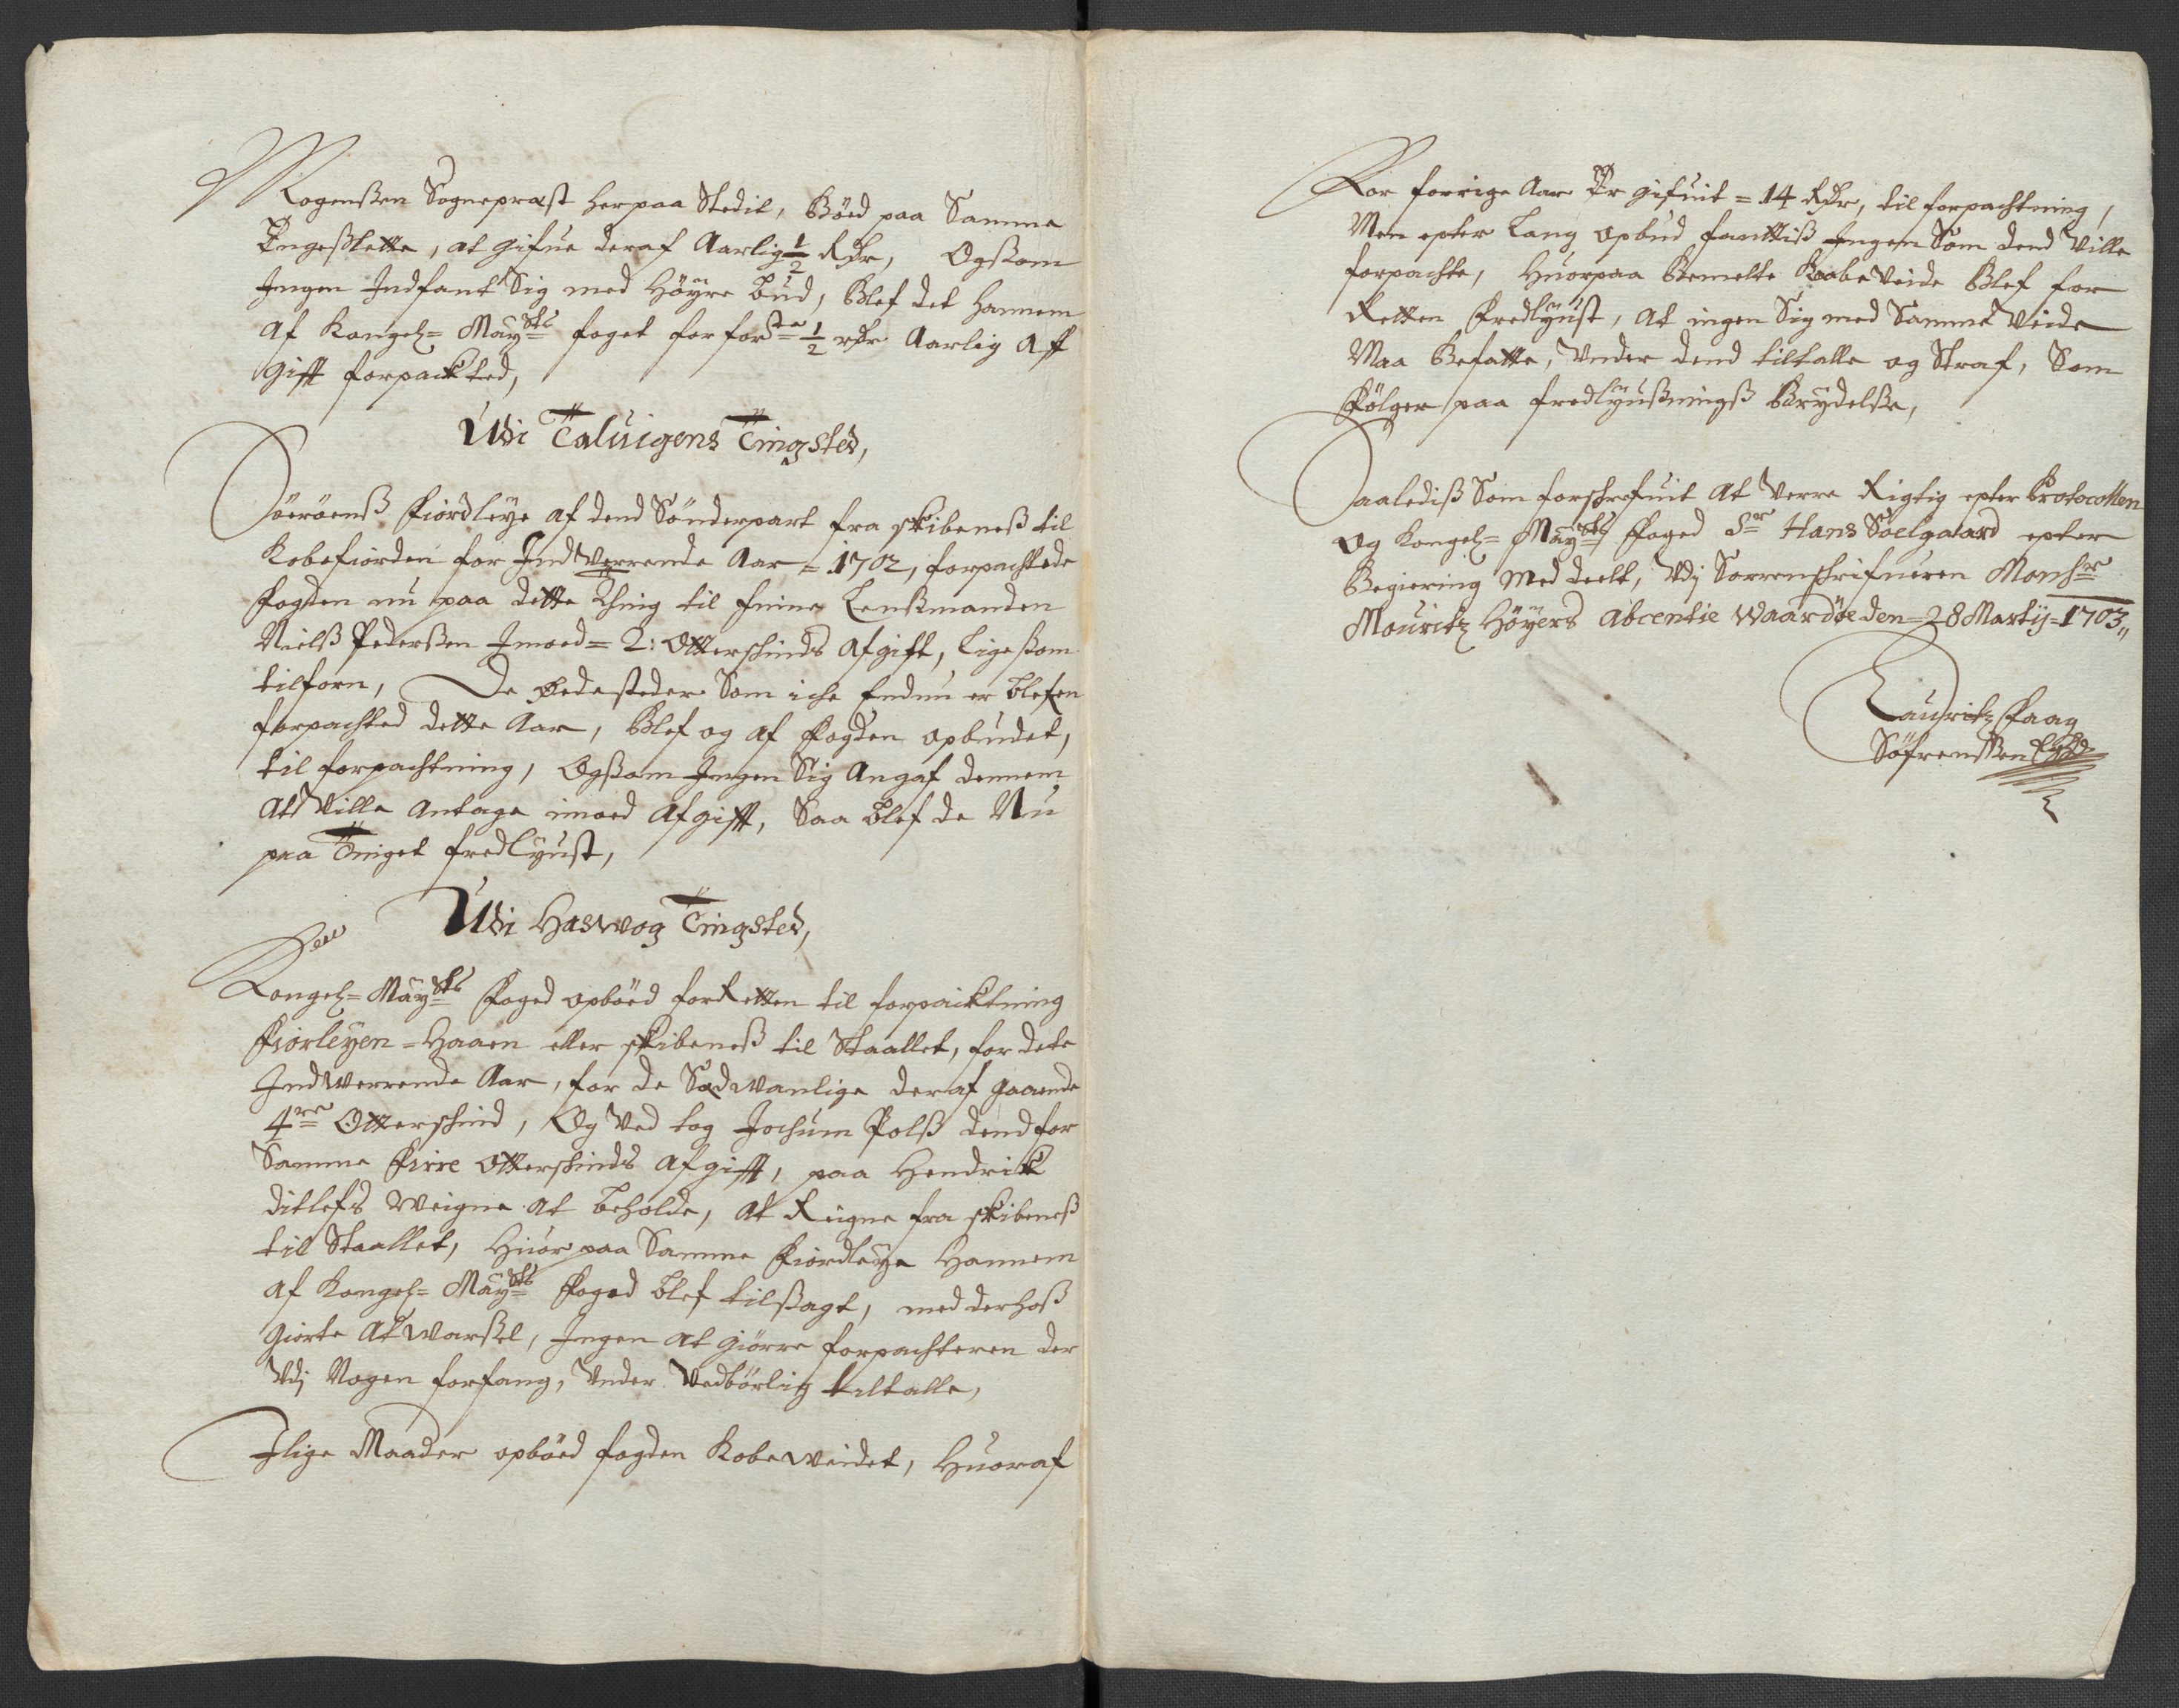 Mogenßen Sognepræst her paa Stedit, Böed paa Samme
Engesßlette, at gifue deraf Aarlig ½ Rdr, Ogsaom
Ingen Indfant Sig med Höÿre bud, blef det hannem
af Kongel= Maÿsts foget for forste ½ rdr Aarlig Aff
gifft forpacktet,
Udi Taluigens Tingsted,
Söeröens Fiordleÿe af dend Sönderpart fra skibeneß til
Kobefiorden for Indverrende Aar = 1702, forpachtede
fogden nu paa dette Thing til sine Lenßmanden
Nielß Pederßen Imoed = 2: Otterschinds Afgift, Ligesom
tilforn, De Öedesteder Som iche Endnu er blefen
forpachted dette Aar, blef og af Fogden opbudet,
til forpachtning, Ogsaom Ingen Sig Angaf dennem
at Ville Antage imoed Afgifft, Saa blef de Nu
paa Tinget fredlÿust,
Udi Haswog Tingsted,
Kongel= Maÿsts Foged opböed for Retten til forpaicktning
Fiorleÿen = Haaen eller skibeneß til Staallet, for dete
Indwerrende Aar, for de Sædwanlige deraf gaaende
4re Otterschind, Og Ved tog Jochum Polß dend for
Samme Firre Otterschinds Afgifft, paa Hendrick
Ditlefs Weigne at beholde, at Reigne fra skibeneß
til Staallet, Huor paa Samme Fiordleÿe Hannem
af Kongel= Maÿsts Foged blef tilßagt, med derhoß
giorte Atwarßel, Ingen at giörre forpachteren der
Vdj Nogen forfang, Vnder Vedbörlig tiltalle,
Ilige Maader opböed fogden Kobeweidet, Huoraf
For forrige Aar Er gifuit = 14 Rdr, til forpachtning,
Men epter Lang opbud fanttiß Ingen Som dend Ville
forpachte, Huorpaa Bemelte Kaabe Veide Blef for
Retten Fredlÿust, at ingen Sig med Samme Veide
Maa Befatte, Vnder dend tiltalle og Straf, Som
Fölger paa fredlÿußningß Brÿdelse,
Saalediß Som forschrefuit at Verre Rigtig epter Protocollen
og Kongel= Maÿsts Foged Sr Hans Soelgaard epter
Begiering Meddeelt, Vdj Sorrenschrifueren Monsr
Mouritz Höÿers Abcentie Waardöe den = 28 Martij = 1703,,
Lauritz Faag
Söfrenßen